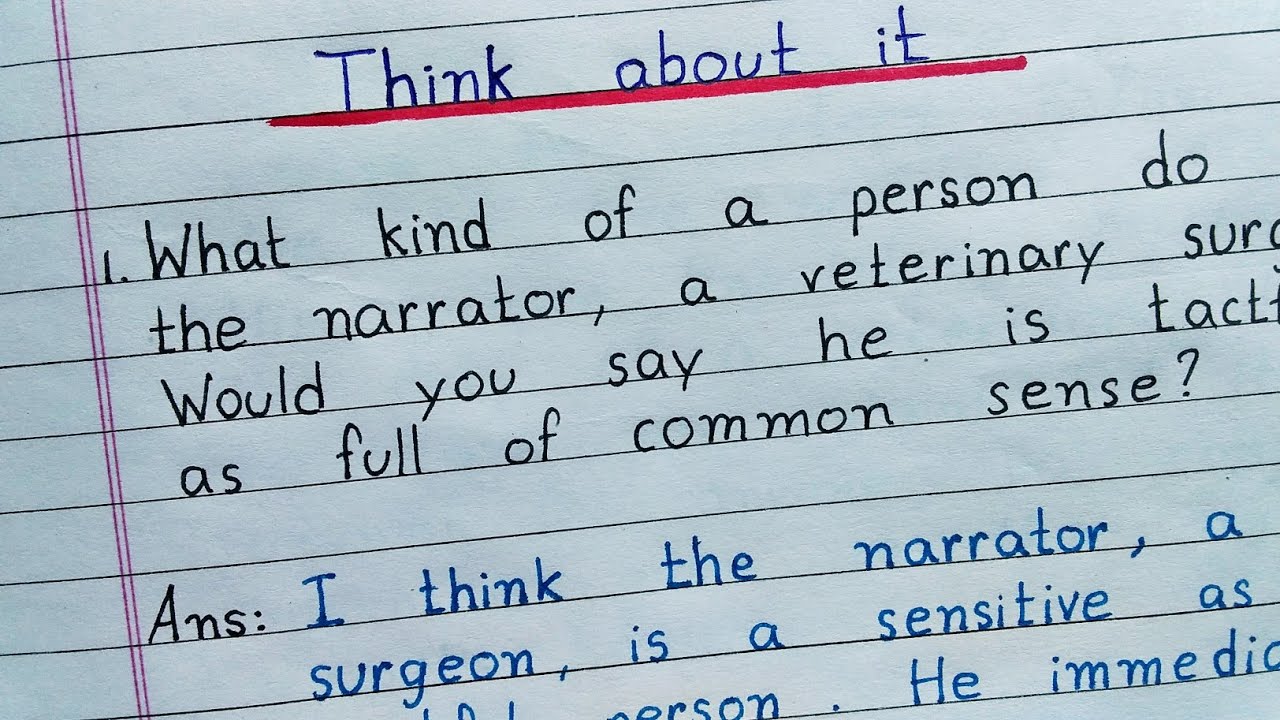 Think about it
1. What kind of a person do
the narrator, a veterinary
Would you say he is
as full of common sense?
Ans: I think the narrator, a
surgeon, is a sensitive as
person. He